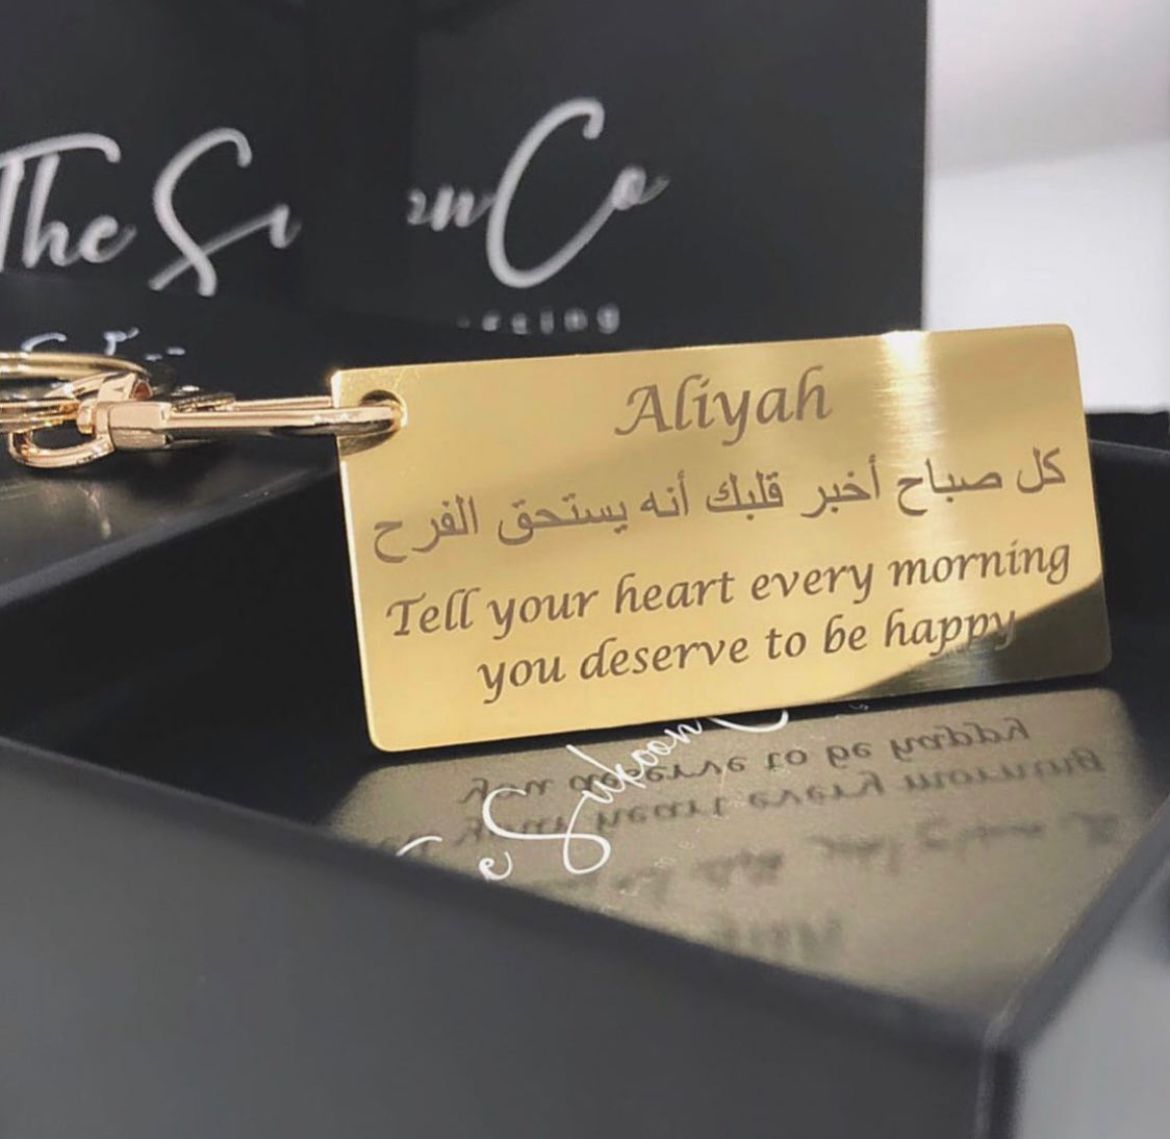 The
Co
Aliyah
كل صباح أخبر قلبك أنه يستحق الفرح
Tell your heart every morning
you deserve to be happy
Sukoon